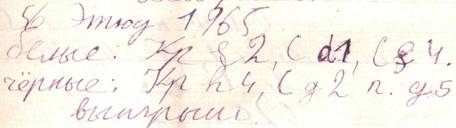 56 Этюд 1965
белые: Кр g2, С d1, С g4.
чёрные: Кр h4, С g2 п. g5
выигрыш.